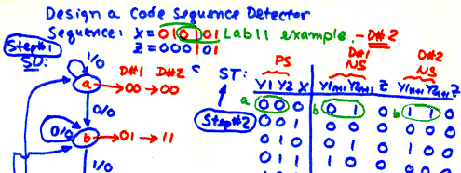 Design a Code Sequence Detector
Sequence: X=010101 Lab11 example, -D#2
Z=000101
Step#1
SD:
1/0
D#1 D#2
a → 00 → 00
0/0
0/0
b → 01 → 11
1/0
ST:
Step#2
PS D#1 NS D#2 NS
Y1 Y2 X Y1n+1 Y2n+1 Z Y1n+1 Y2n+1 Z
a 0 0 0 b 0 1 0 b 1 1 0
0 0 1 0 0 0 0 0 0